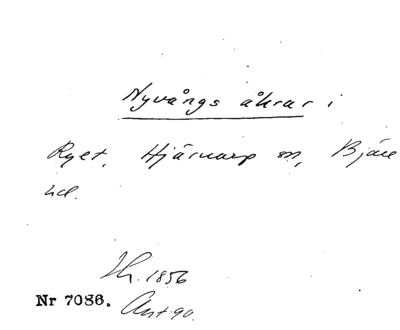 Nyvångs åkrar i
Ryet, Hjärnarp sn, Bjäre
hd.
1856
Nr 7086. Ant. 90.